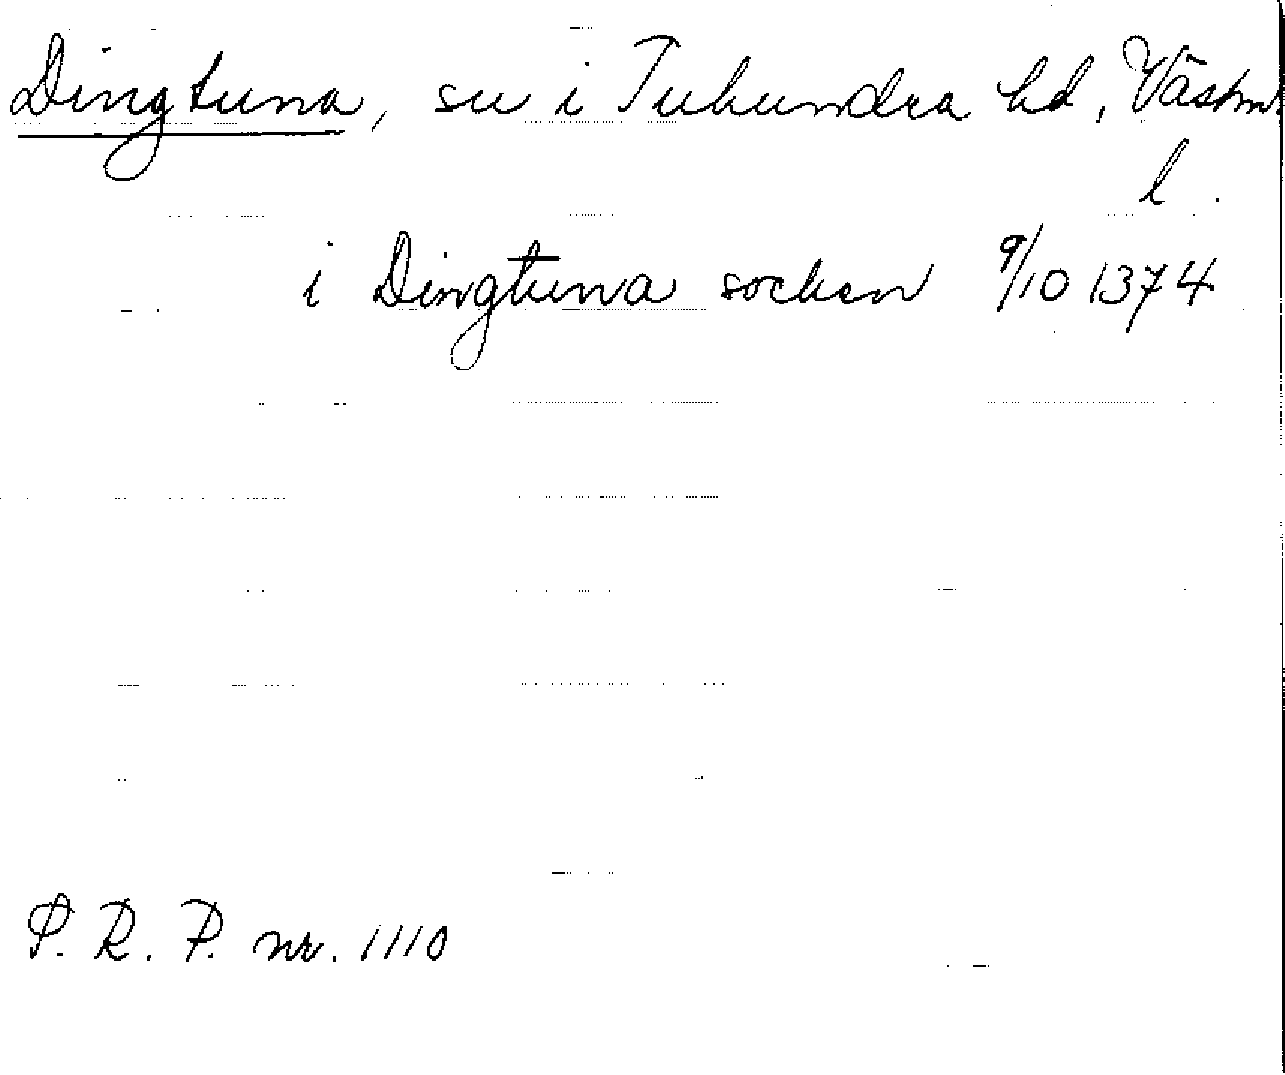 Dingtuna, sn i Tuhundra hd, Västm
l.
i Dingtuna socken 9/10 1374
S. R. P. nr. 1110